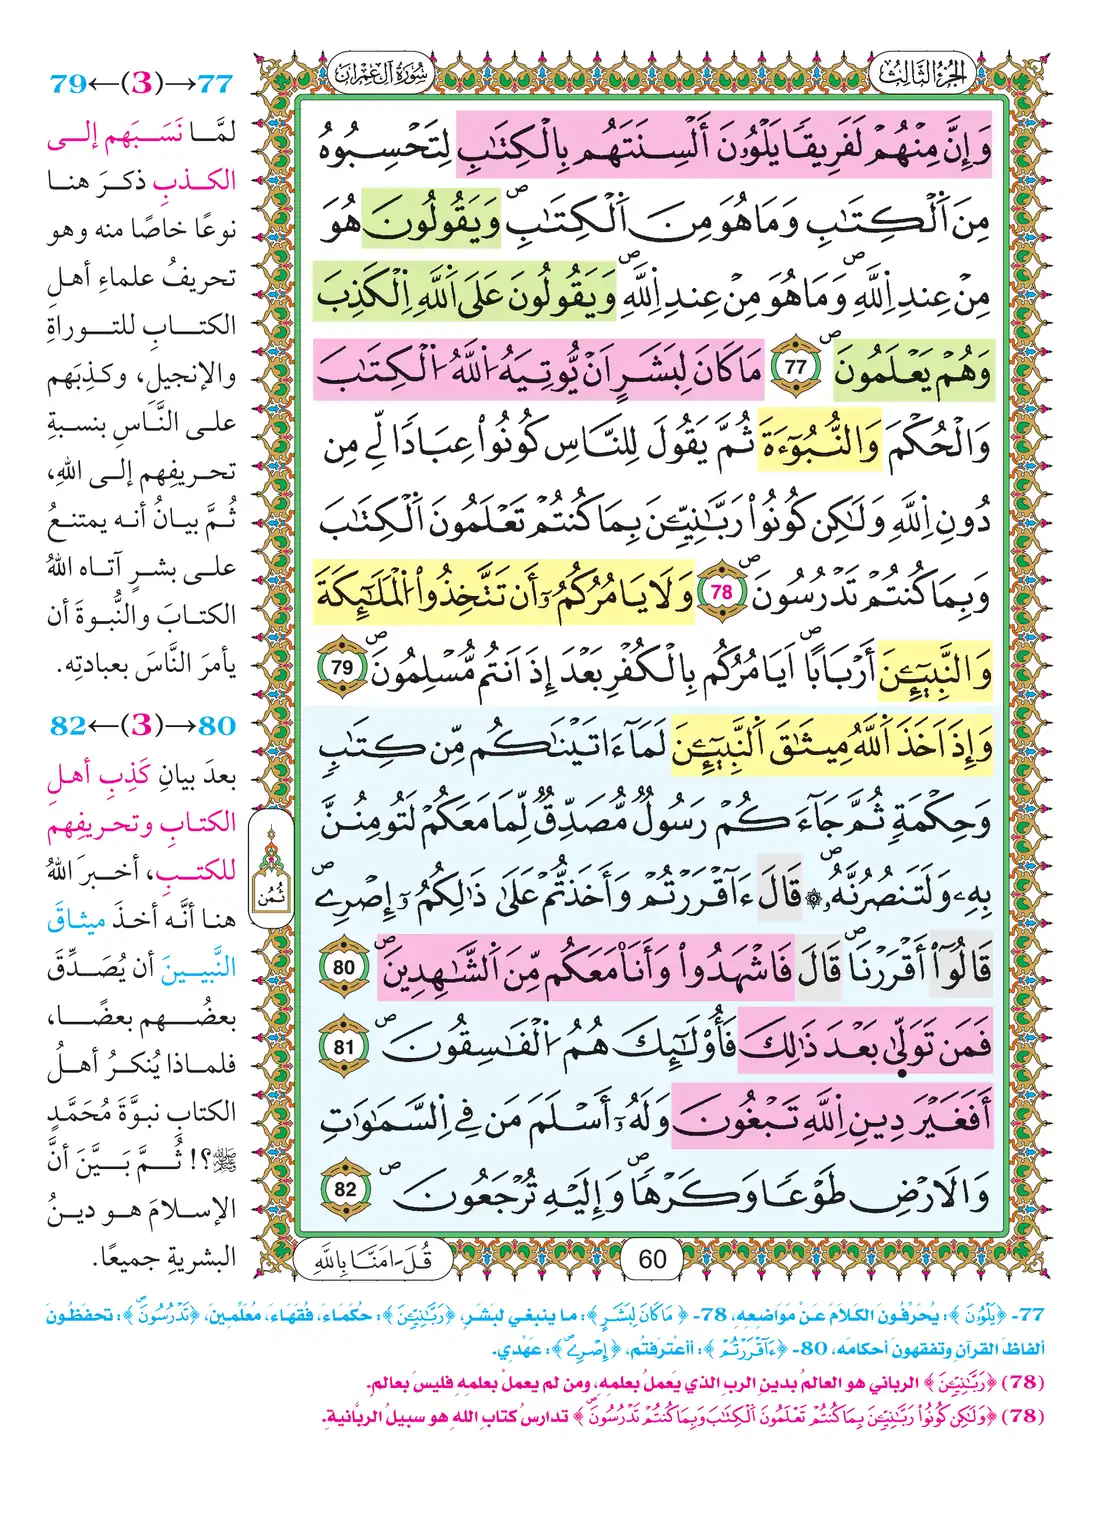 الجزء الثالث
سورة آل عمران
وَإِنَّ مِنْهُمْ لَفَرِيقٗا يَلْوُۥنَ أَلْسِنَتَهُم بِالْكِتَٰبِ لِتَحْسِبُوهُ
مِنَ اَ۬لْكِتَٰبِ وَمَا هُوَ مِنَ اَ۬لْكِتَٰبِۖ وَيَقُولُونَ هُوَ
مِنْ عِندِ اِ۬للَّهِۖ وَمَا هُوَ مِنْ عِندِ اِ۬للَّهِۖ وَيَقُولُونَ عَلَى اَ۬للَّهِ اِ۬لْكَذِبَ
وَهُمْ يَعْلَمُونَۖ 77 مَا كَانَ لِبَشَرٍ اَنْ يُّوتِيَهُ اُ۬للَّهُ اُ۬لْكِتَٰبَ
وَالْحُكْمَ وَالنُّبُوٓءَةَ ثُمَّ يَقُولَ لِلنَّاسِ كُونُواْ عِبَادٗا لِّے مِن
دُونِ اِ۬للَّهِ وَلَٰكِن كُونُواْ رَبَّٰنِيِّـۧنَ بِمَا كُنتُمْ تَعْلَمُونَ اَ۬لْكِتَٰبَ
وَبِمَا كُنتُمْ تَدْرُسُونَۖ 78 وَلَا يَامُرُكُمُۥٓ أَن تَتَّخِذُواْ اُ۬لْمَلَٰٓئِكَةَ
وَالنَّبِيٓـِٕۧنَ أَرْبَاباًۖ اَيَامُرُكُم بِالْكُفْرِ بَعْدَ إِذَ اَنتُم مُّسْلِمُونَۖ 79
وَإِذَ اَخَذَ اَ۬للَّهُ مِيثَٰقَ اَ۬لنَّبِيٓـِٕۧنَ لَمَآ ءَاتَيْنَٰكُم مِّن كِتَٰبٖ
وَحِكْمَةٖ ثُمَّ جَآءَكُمْ رَسُولٞ مُّصَدِّقٞ لِّمَا مَعَكُمْ لَتُومِنُنَّ
بِهِۦ وَلَتَنصُرُنَّهُۥۖ ۞ قَالَ ءَآقْرَرْتُمْ وَأَخَذتُّمْ عَلَىٰ ذَٰلِكُمُۥٓ إِصْرِےۖ
قَالُوٓاْ أَقْرَرْنَاۖ قَالَ فَاشْهَدُواْ وَأَنَا مَعَكُم مِّنَ اَ۬لشَّٰهِدِينَۖ 80
فَمَن تَوَلّ۪ىٰ بَعْدَ ذَٰلِكَ فَأُوْلَٰٓئِكَ هُمُ اُ۬لْفَٰسِقُونَۖ 81
أَفَغَيْرَ دِينِ اِ۬للَّهِ تَبْغُونَ وَلَهُۥٓ أَسْلَمَ مَن فِے اِ۬لسَّمَٰوَٰتِ
وَالَارْضِ طَوْعٗا وَكَرْهٗاۖ وَإِلَيْهِ تُرْجَعُونَۖ 82
ثُمُن
60
قُلَ اٰمَنَّا بِاللَّهِ
77→(3)←79
لمَّا نَسَبَهم إلى
الكذبِ ذكرَ هنا
نوعًا خاصًا منه وهو
تحريفُ علماءِ أهلِ
الكتابِ للتوراةِ
والإنجيلِ، وكذِبَهم
على النَّاسِ بنسبةِ
تحريفِهم إلى اللهِ،
ثُمَّ بيانُ أنه يمتنعُ
على بشرٍ آتاه اللهُ
الكتابَ والنُّبوةَ أن
يأمرَ النَّاسَ بعبادتِه.
80→(3)←82
بعدَ بيانِ كَذِبِ أهلِ
الكتابِ وتحريفِهم
للكتبِ، أخبرَ اللهُ
هنا أنَّه أخذَ ميثاقَ
النَّبيينَ أن يُصَدِّقَ
بعضُهم بعضًا،
فلماذا يُنكرُ أهلُ
الكتابِ نبوَّةَ مُحَمَّدٍ
ﷺ؟! ثُمَّ بَيَّنَ أنَّ
الإسلامَ هو دينُ
البشريةِ جميعًا.
77- ﴿يَلْوُۥنَ﴾: يُحَرِّفُونَ الكَلَامَ عَنْ مَوَاضِعِهِ، 78- ﴿مَا كَانَ لِبَشَرٍ﴾: ما ينبغي لبَشَرٍ، ﴿رَبَّٰنِيِّـۧنَ﴾: حُكَمَاءَ، فُقَهَاءَ، مُعَلِّمِينَ، ﴿تَدْرُسُونَۖ﴾: تحفظُونَ
ألفاظَ القرآنِ وتفقهونَ أحكامَه، 80- ﴿ءَآقْرَرْتُمْ﴾: أاعْترفتُم، ﴿إِصْرِےۖ﴾: عَهْدِي.
(78) ﴿رَبَّٰنِيِّـۧنَ﴾ الرباني هو العالمُ بدينِ الربِ الذي يَعملُ بعلمِه، ومن لم يعملْ بعلمِه فليسَ بعالم.
(78) ﴿وَلَٰكِن كُونُواْ رَبَّٰنِيِّـۧنَ بِمَا كُنتُمْ تَعْلَمُونَ اَ۬لْكِتَٰبَ وَبِمَا كُنتُمْ تَدْرُسُونَۖ﴾ تدارسُ كتابِ الله هو سبيلُ الربَّانية.